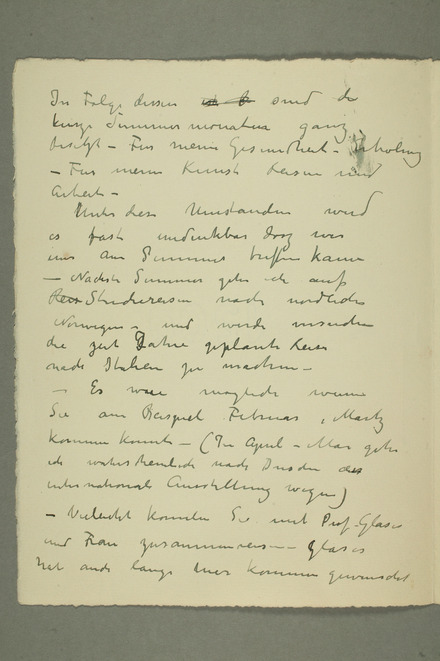 In Folge dessen sind die
kurze Sommermonathen ganz
besetzt – Für meine Gesundheit – Erholung
– Für meine Kunst Reisen und
Arbeit –
Unter diese Umstanden wird
es fast undenkbar dass wir
uns am Sommer treffen kann
– Nächste Sommer gehe ich aufs
Studiereisen nach nordliche
Norwegen – und werde versuchen
die zeit Jahre geplante Reise
nach Italien zu machen –
– Es wäre moglich wenn
Sie am Beispiel Februar, Martz
kommen konnte – (In April – Mai gehe
ich warscheinlich nach Dresden der
internationale Ausstellung wegen)
– Vieleicht konnten Sie mit Prof. Glaser
und Frau zusammenreisen – Glaser
hat auch lange hier kommen gewünscht